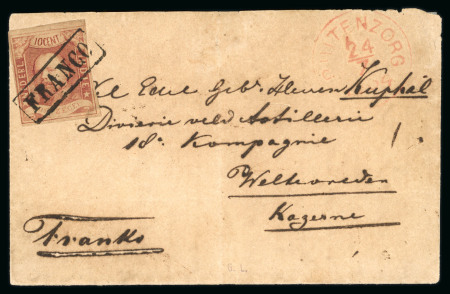 10 CENT
FRANCO
BUITENZORG
24
Wel Edel Geb. Heeren Kuphal
Divisie veld Artillerie
18e Kompagnie
Weltevreden
Kazerne
Franko